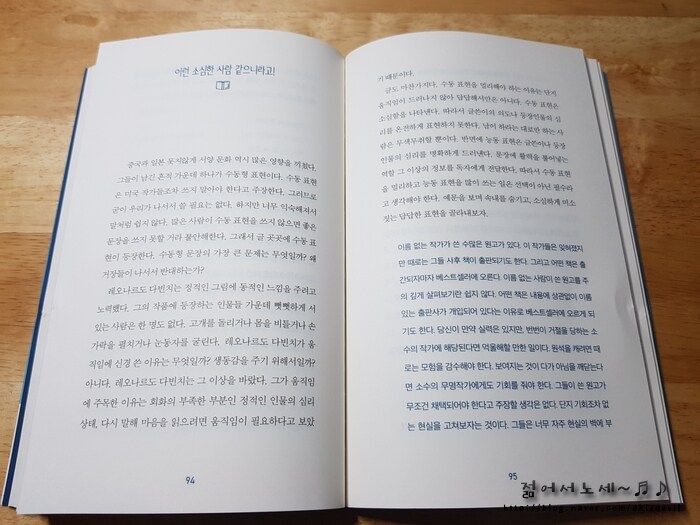 이런 소심한 사람 같으니라고!
중국과 일본 못지않게 서양 문화 역시 많은 영향을 끼쳤다.
그들이 남긴 흔적 가운데 하나가 수동형 표현이다. 수동 표현
은 미국 작가들조차 쓰지 말아야 한다고 주장한다. 그러므로
굳이 우리가 나서서 쓸 필요는 없다. 하지만 너무 익숙해져서
말처럼 쉽지 않다. 많은 사람이 수동 표현을 쓰지 않으면 좋은
문장을 쓰지 못할 거라 불안해한다. 그래서 글 곳곳에 수동 표
현이 등장한다. 수동형 문장의 가장 큰 문제는 무엇일까? 왜
거장들이 나서서 반대하는가?
레오나르도 다빈치는 정적인 그림에 동적인 느낌을 주려고
노력했다. 그의 작품에 등장하는 인물들 가운데 뻣뻣하게 서
있는 사람은 한 명도 없다. 고개를 돌리거나 몸을 비틀거나 손
가락을 펼치거나 눈동자를 굴린다. 레오나르도 다빈치가 움
직임에 신경 쓴 이유는 무엇일까? 생동감을 주기 위해서일까?
아니다. 레오나르도 다빈치는 그 이상을 바랐다. 그가 움직임
에 주목한 이유는 회화의 부족한 부분인 정적인 인물의 심리
상태, 다시 말해 마음을 읽으려면 움직임이 필요하다고 보았
94
기 때문이다.
글도 마찬가지다. 수동 표현을 멀리해야 하는 이유는 단지
움직임이 드러나지 않아 답답해서만은 아니다. 수동 표현은
소심함을 나타낸다. 따라서 글쓴이의 의도나 등장인물의 심
리를 온전하게 표현하지 못한다. 남이 하라는 대로만 하는 사
람은 무색무취할 뿐이다. 반면에 능동 표현은 글쓴이나 등장
인물의 심리를 명확하게 드러낸다. 문장에 활력을 불어넣는
역할 그 이상의 정보를 독자에게 전달한다. 따라서 수동 표현
을 멀리하고 능동 표현을 많이 쓰는 일은 선택이 아닌 필수라
고 생각해야 한다. 예문을 보며 속내를 숨기고, 소심하게 미소
짓는 답답한 표현을 골라내보자.
이름 없는 작가가 쓴 수많은 원고가 있다. 이 작가들은 잊혀졌지
만 때로는 그들 사후 책이 출판되기도 한다. 그리고 어떤 책은 출
간되자마자 베스트셀러에 오른다. 이름 없는 사람이 쓴 원고를 주
의 깊게 살펴보기란 쉽지 않다. 어떤 책은 내용에 상관없이 이름
있는 출판사가 개입되어 있다는 이유로 베스트셀러에 오르게 되
기도 한다. 당신이 만약 실력은 있지만, 번번이 거절을 당하는 소
수의 작가에 해당된다면 억울해할 만한 일이다. 원석을 캐려면 때
로는 모험을 감수해야 한다. 보여지는 것이 다가 아님을 깨닫는다
면 소수의 무명작가에게도 기회를 줘야 한다. 그들이 쓴 원고가
무조건 채택되어야 한다고 주장할 생각은 없다. 단지 기회조차 없
는 현실을 고쳐보자는 것이다. 그들은 너무 자주 현실의 벽에 부
95
젊어서노세~♬♪